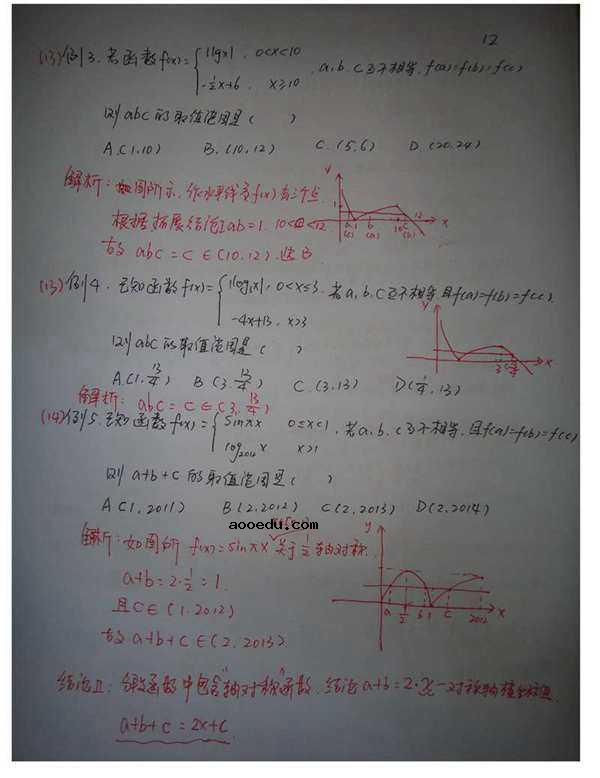 12
(13)例3. 若函数f(x)={|lgx|, 0<x<10
-½x+6, x≥10
, a、b、c互不相等, f(a)=f(b)=f(c)
则abc的取值范围是( )
A.(1,10) B.(10,12) C.(5,6) D.(20,24)
解析: 如图所示, 作水平线交f(x)有三个点
根据拓展结论I ab=1. 10<c<12
故 abc=c∈(10,12). 选B
(13)例4. 已知函数f(x)={|log₃x|, 0<x≤3. 若a、b、c互不相等,且f(a)=f(b)=f(c).
-4x+13, x>3
则abc的取值范围是( )
A.(1,13/4) B(3,13/4) C.(3,13) D(¼,13)
解析: abc=c∈(3,13/4)
(14)例5. 已知函数f(x)={sinπx 0≤x≤1, 若a、b、c互不相等, 且f(a)=f(b)=f(c)
log₂₀₁₂x x>1
则 a+b+c 的取值范围是( )
A(1,2011) B(2,2012) C(2,2013) D(2,2014)
aooedu.com
解析: 如图所 f(x)=sinπx 关于½轴对称.
a+b=2·½=1.
且c∈(1,2012)
故a+b+c∈(2,2013).
结论II: 分段函数中包含"轴对称"函数. 结论a+b=2·x—对称轴横坐标
a+b+c=2x+c